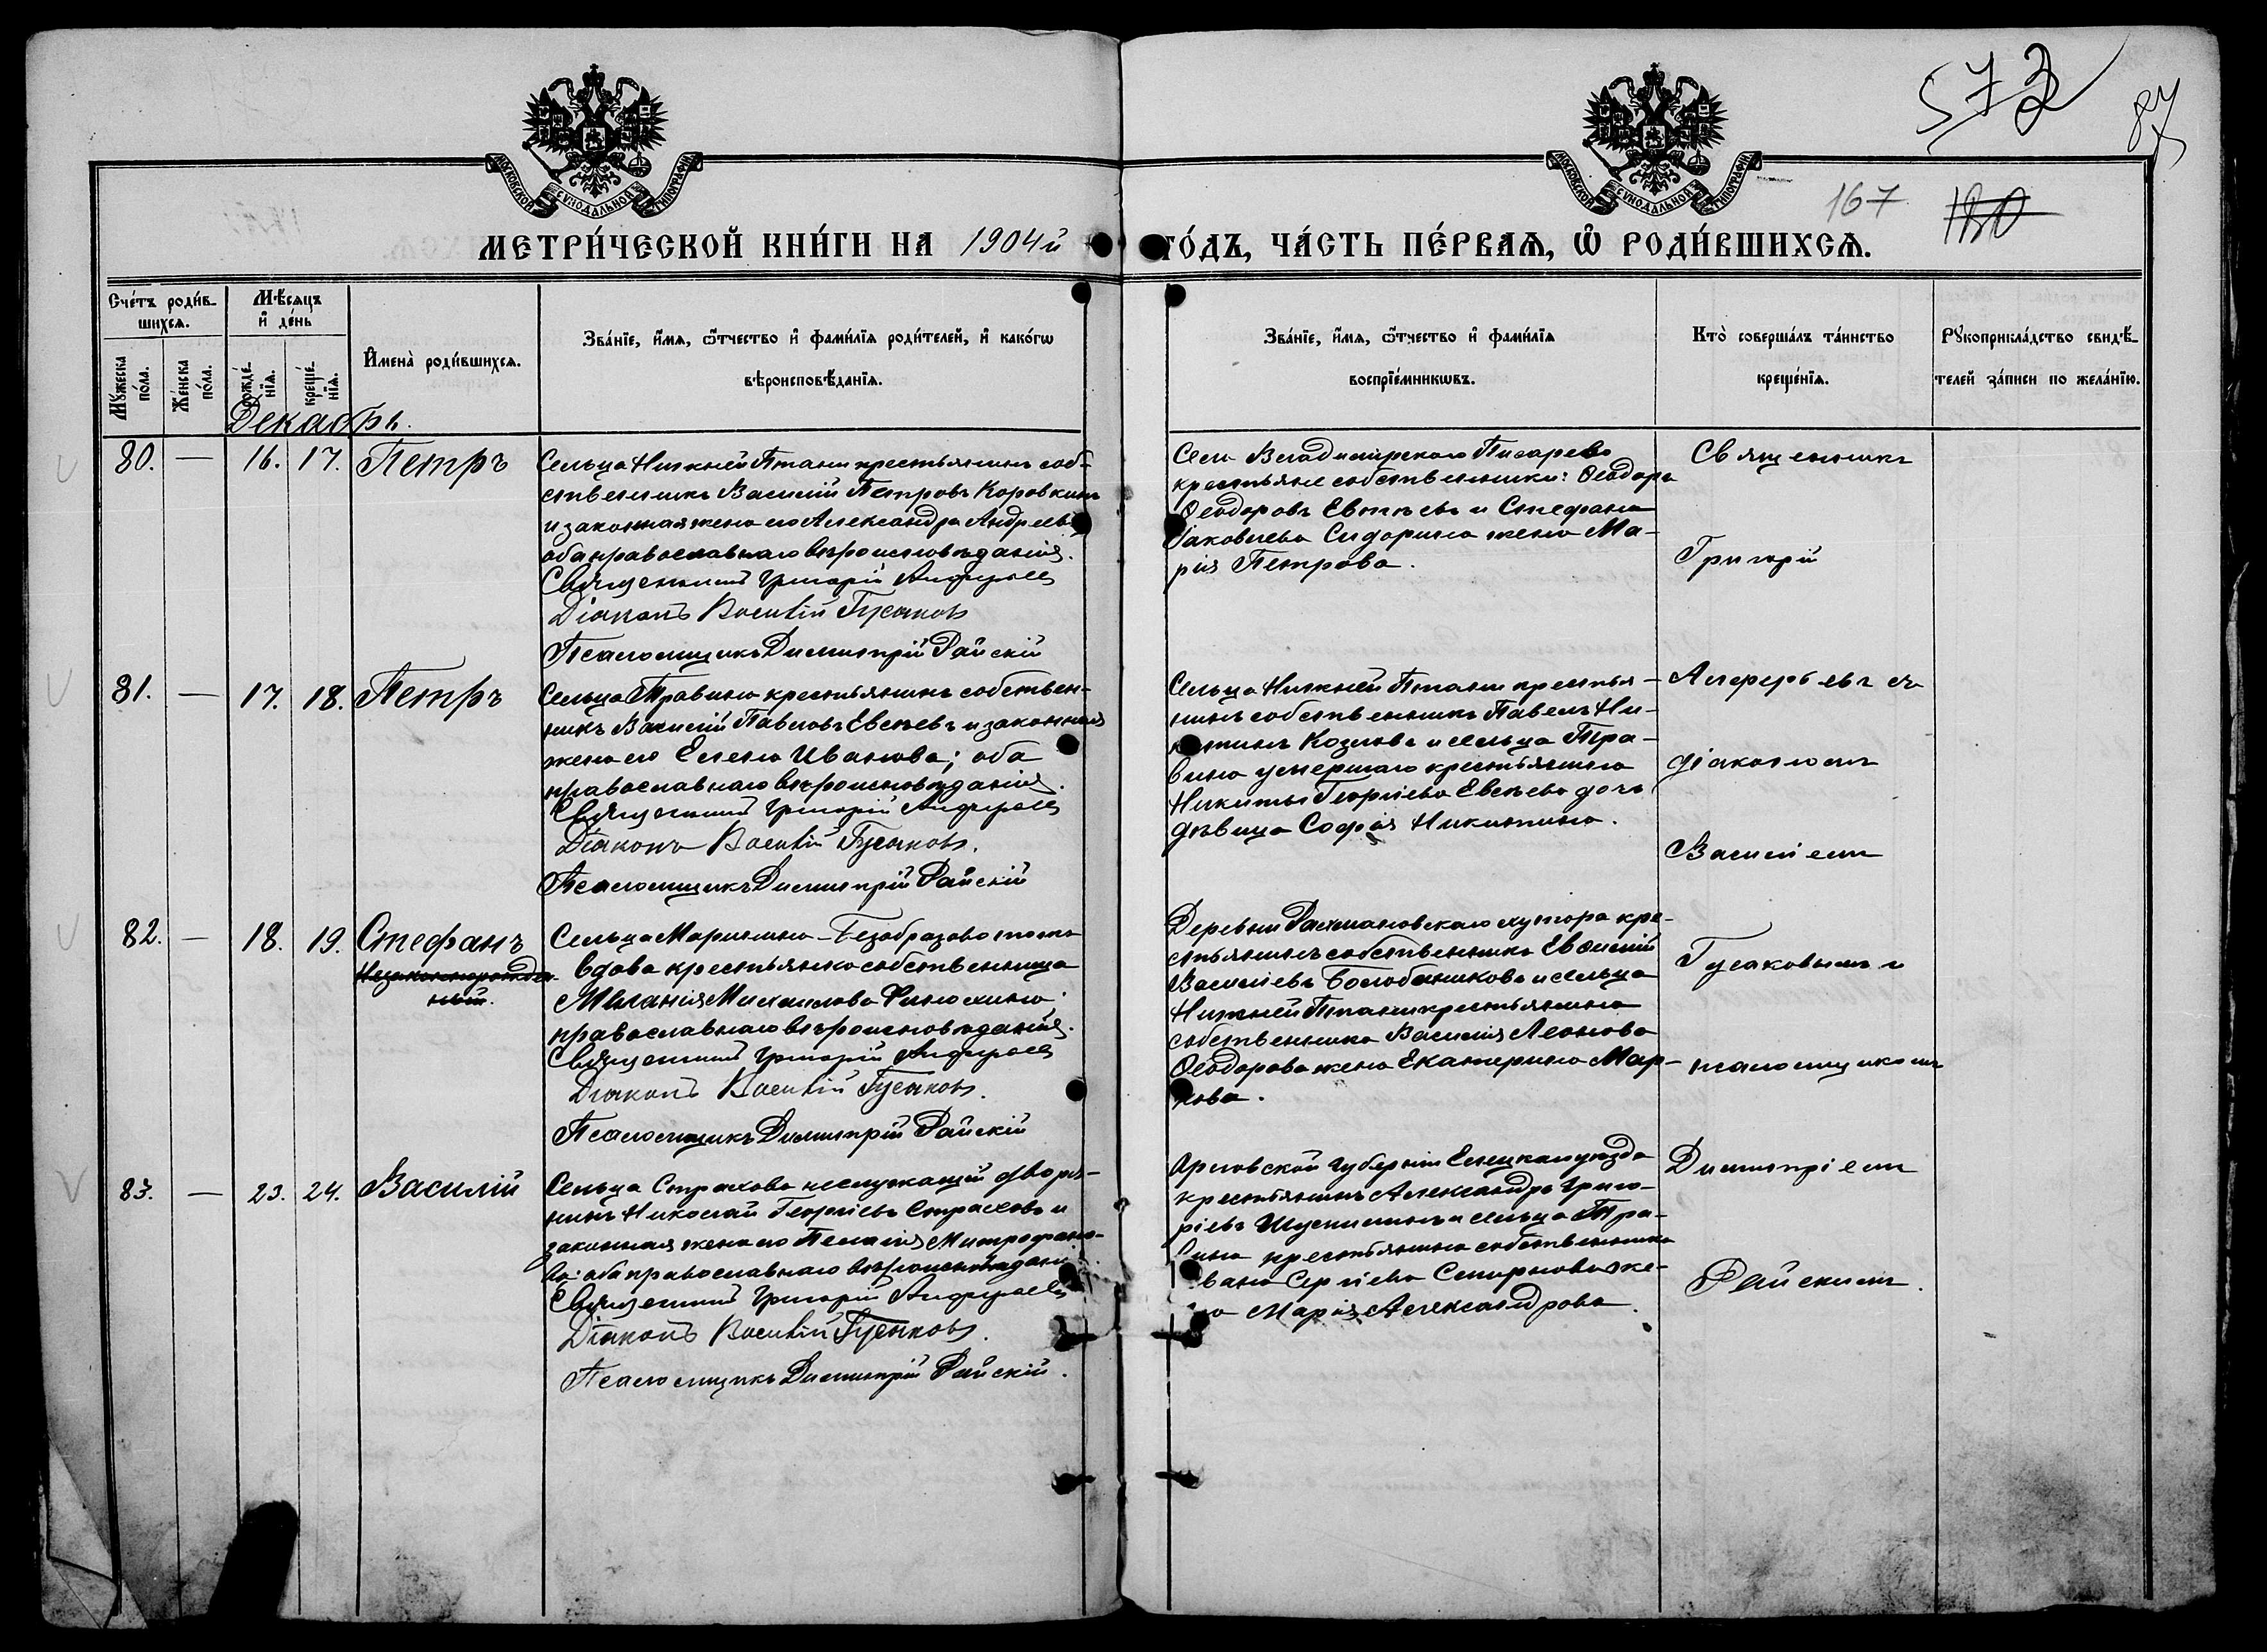 573
87
167
180
МОСКОВСКОЙ СѴНОДАЛЬНОЙ ТИПОГРАФІИ
МОСКОВСКОЙ СѴНОДАЛЬНОЙ ТИПОГРАФІИ
МЕТРИ́ЧЕСКОЙ КНИ́ГИ НА 1904й
ГО́ДЪ, ЧА́СТЬ ПЕ́РВАѦ, Ѽ РОДИ́ВШИХСѦ.
Сче́тъ роди́в-
шихсѧ.
Мꙋжеска по́ла.
Же́нска по́ла.
Мѣ́сѧцъ
и҆ де́нь
рожде́-
нїѧ.
креще́-
нїѧ.
И҆мена̀ роди́вшихсѧ.
Зва́нїе, и҆́мѧ, ѻ҆́тчество и҆ фами́лїѧ роди́телей, и҆ како́гѡ
вѣроисповѣ́данїѧ.
Зва́нїе, и҆́мѧ, ѻ҆́тчество и҆ фами́лїѧ
воспрїе́мникѡвъ.
Кто̀ соверша́лъ та́инство
креще́нїѧ.
Рꙋкоприкла́дство свидѣ́-
телей за́писи по жела́нїю.
Декабрь.
80. — 16. 17. Петръ
Сельца Нижней Птани крестьянинъ соб-
ственникъ Василій Петровъ Коровкинъ
и законная жена его Александра Андреева
оба православнаго вѣроисповѣданія.
Священникъ Григорій Алферьевъ
Діаконъ Василій Гусаковъ
Псаломщикъ Димитрій Райскій
Села Владимірскаго Писарево
крестьяне собственники: Ѳеодоръ
Ѳеодоровъ Евтѣевъ и Стефана
Іаковлева Сидорина жена Ма-
рія Петрова.
81. — 17. 18. Петръ
Сельца Травина крестьянинъ собствен-
никъ Василій Павловъ Евсѣевъ и законная
жена его Елена Иванова; оба
православнаго вѣроисповѣданія.
Священникъ Григорій Алферьевъ
Діаконъ Василій Гусаковъ.
Псаломщикъ Димитрій Райскій
Сельца Нижней Птани крестья-
нинъ собственникъ Павелъ Ни-
китинъ Козловъ и сельца Тра-
вина умершаго крестьянина
Никиты Георгіева Евсѣева дочь
дѣвица Софія Никитина.
82. — 18. 19. Стефанъ
Незаконнорожден-
ный.
Сельца Марьино-Безобразово тожъ
вдова крестьянка собственница
Меланія Михаилова Финохина
православнаго вѣроисповѣданія.
Священникъ Григорій Алферьевъ
Діаконъ Василій Гусаковъ.
Псаломщикъ Димитрій Райскій
Деревни Рахмановскаго хутора кре-
стьянинъ собственникъ Евѳимій
Васильевъ и сельца
Нижней Птани крестьянина
собственника Василія Леонова
Ѳеодорова жена Екатерина Мар-
кова.
83. — 23. 24. Василій
Сельца Страхова неслужащій дворя-
нинъ Николай Георгіевъ Страховъ и
законная жена его Пелагія Митрофано-
ва: оба православнаго вѣроисповѣданія.
Священникъ Григорій Алферьевъ
Діаконъ Василій Гусаковъ.
Псаломщикъ Димитрій Райскій.
Орловской губерніи Елецкаго уѣзда
крестьянинъ Александръ Григо-
ріевъ и сельца Тра-
вина крестьянина собственника
Ивана Сергіева Смирнова же-
на Марія Александрова.
Священникъ
Григорій
Алферьевъ съ
діакономъ
Василіемъ
Гусаковымъ и
псаломщикомъ
Димитріемъ
Райскимъ.